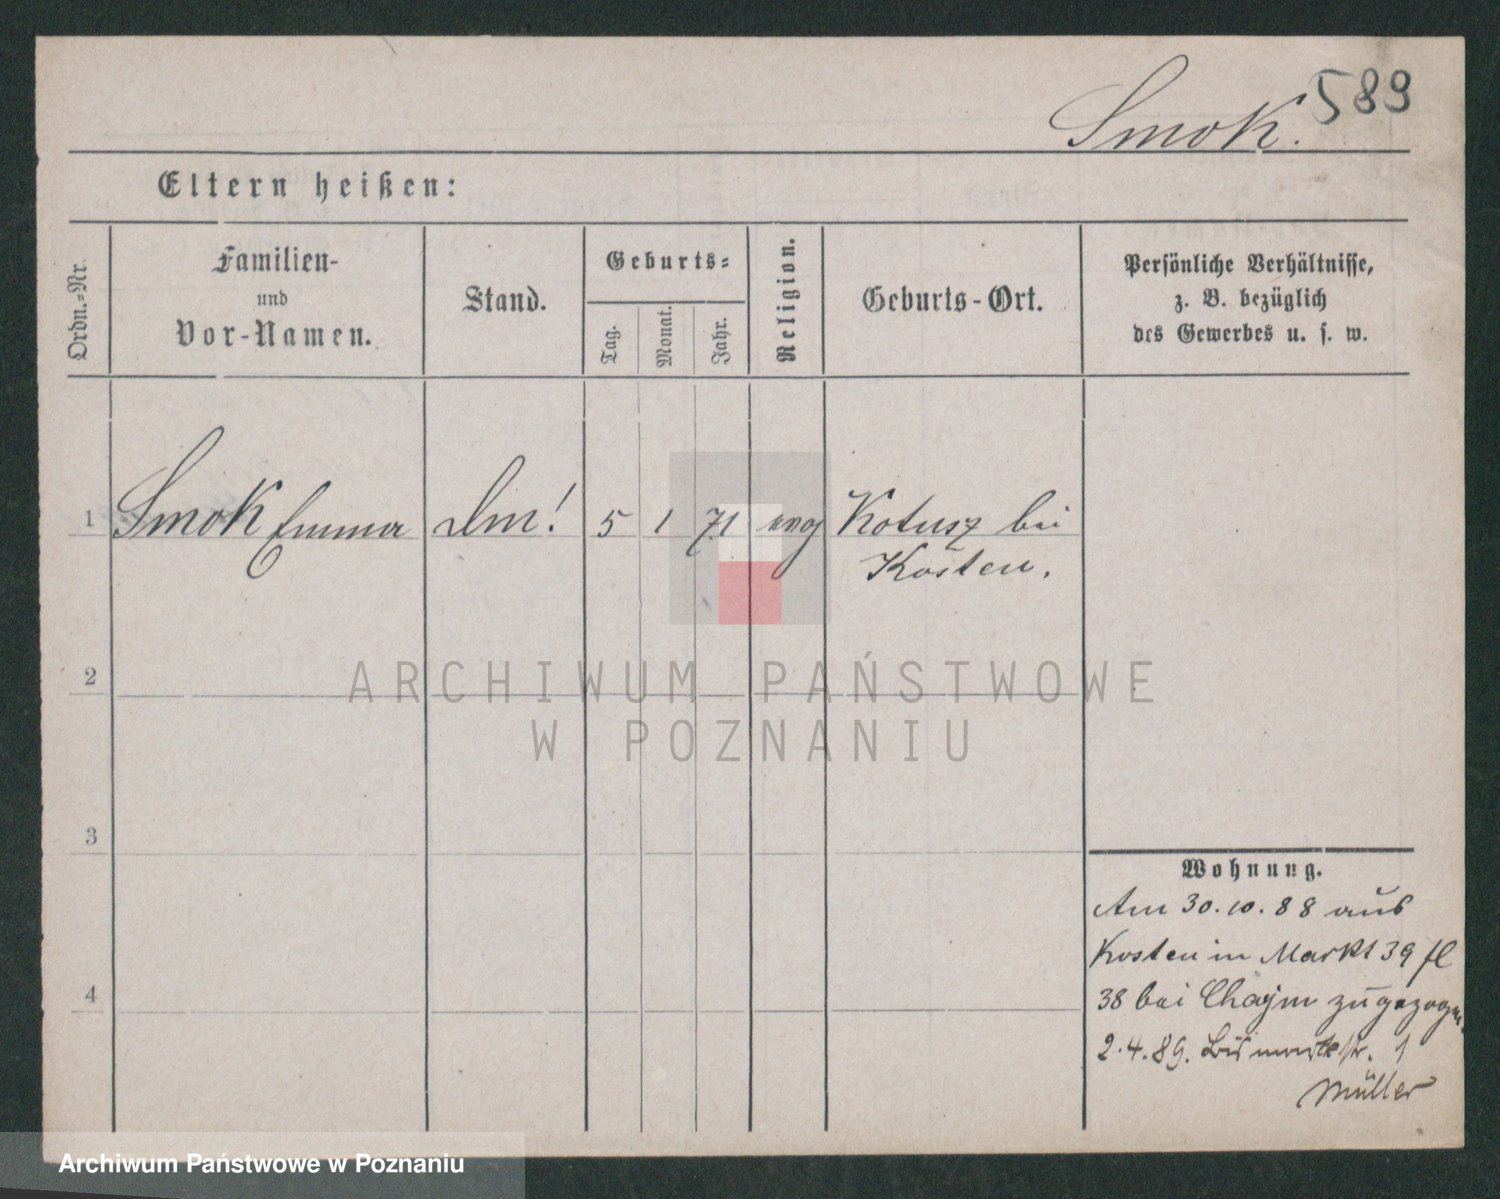 589
Smok.
Eltern heißen:
Ordn.=Nr.
Familien-
und
Vor-Namen.
Stand.
Geburts=
Tag.
Monat.
Jahr.
Religion.
Geburts-Ort.
Persönliche Verhältnisse,
z. B. bezüglich
des Gewerbes u. s. w.
1 Smok Emma 5 1 71 evag Kotusz bei
Kosten.
2
3
4
Wohnung.
Am 30.10.88 aus
Kosten in Markt 39
38 bei Chajm zugezogen
2.4.89. Bismarckstr. 1
Müller
ARCHIWUM PAŃSTWOWE
W POZNANIU
Archiwum Państwowe w Poznaniu